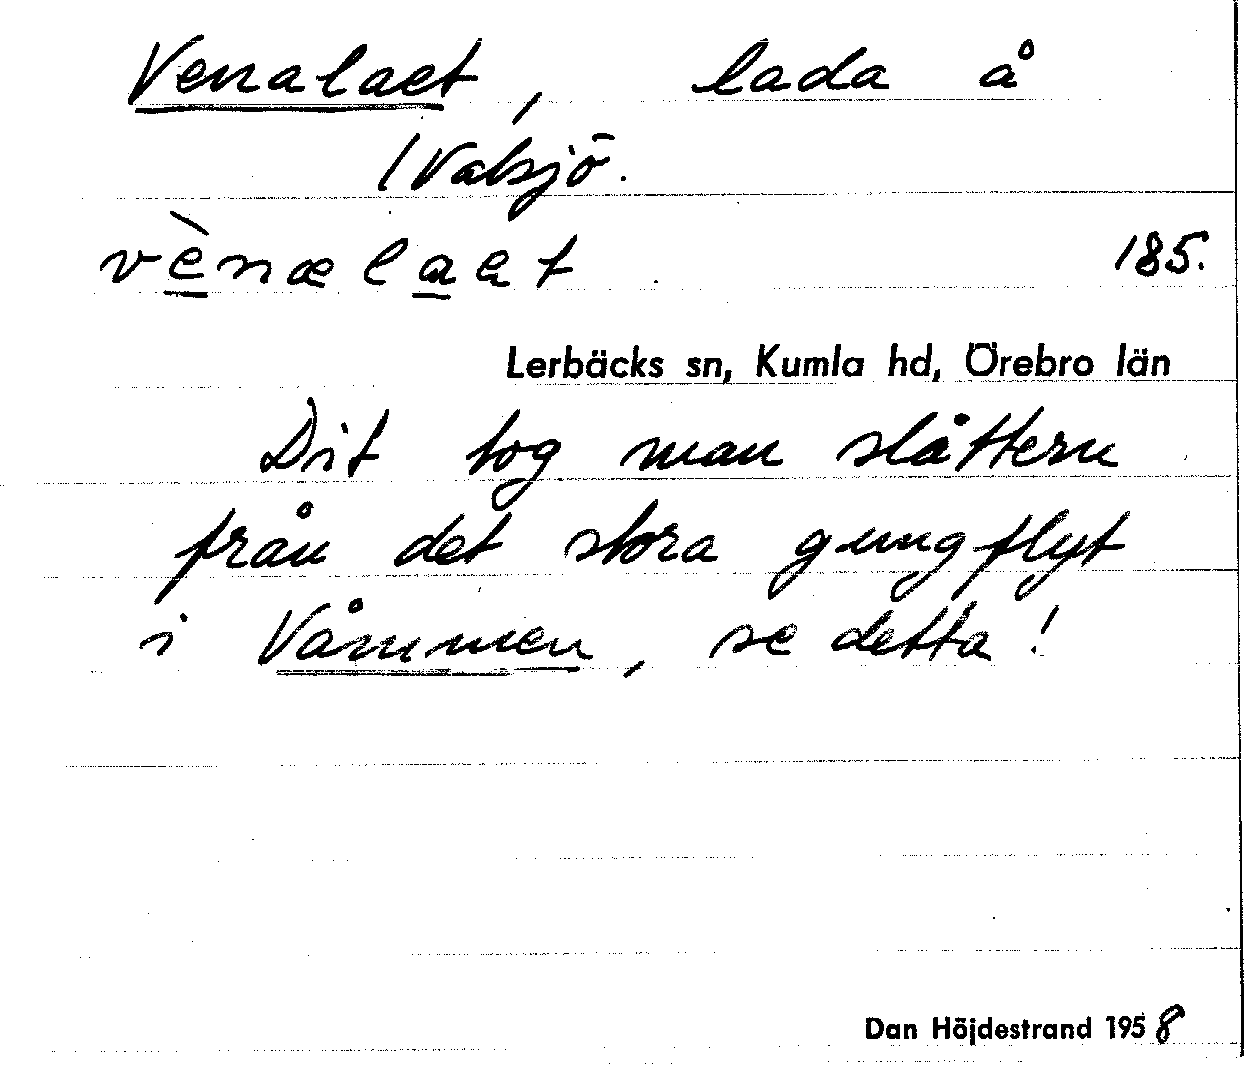 Venalaet, lada å
1 Valsjö.
vènælaet 185.
Lerbäcks sn, Kumla hd, Örebro län
Dit tog man slåttern
från det stora gungflyt
i Våmmen, se detta!
Dan Höjdestrand 1958